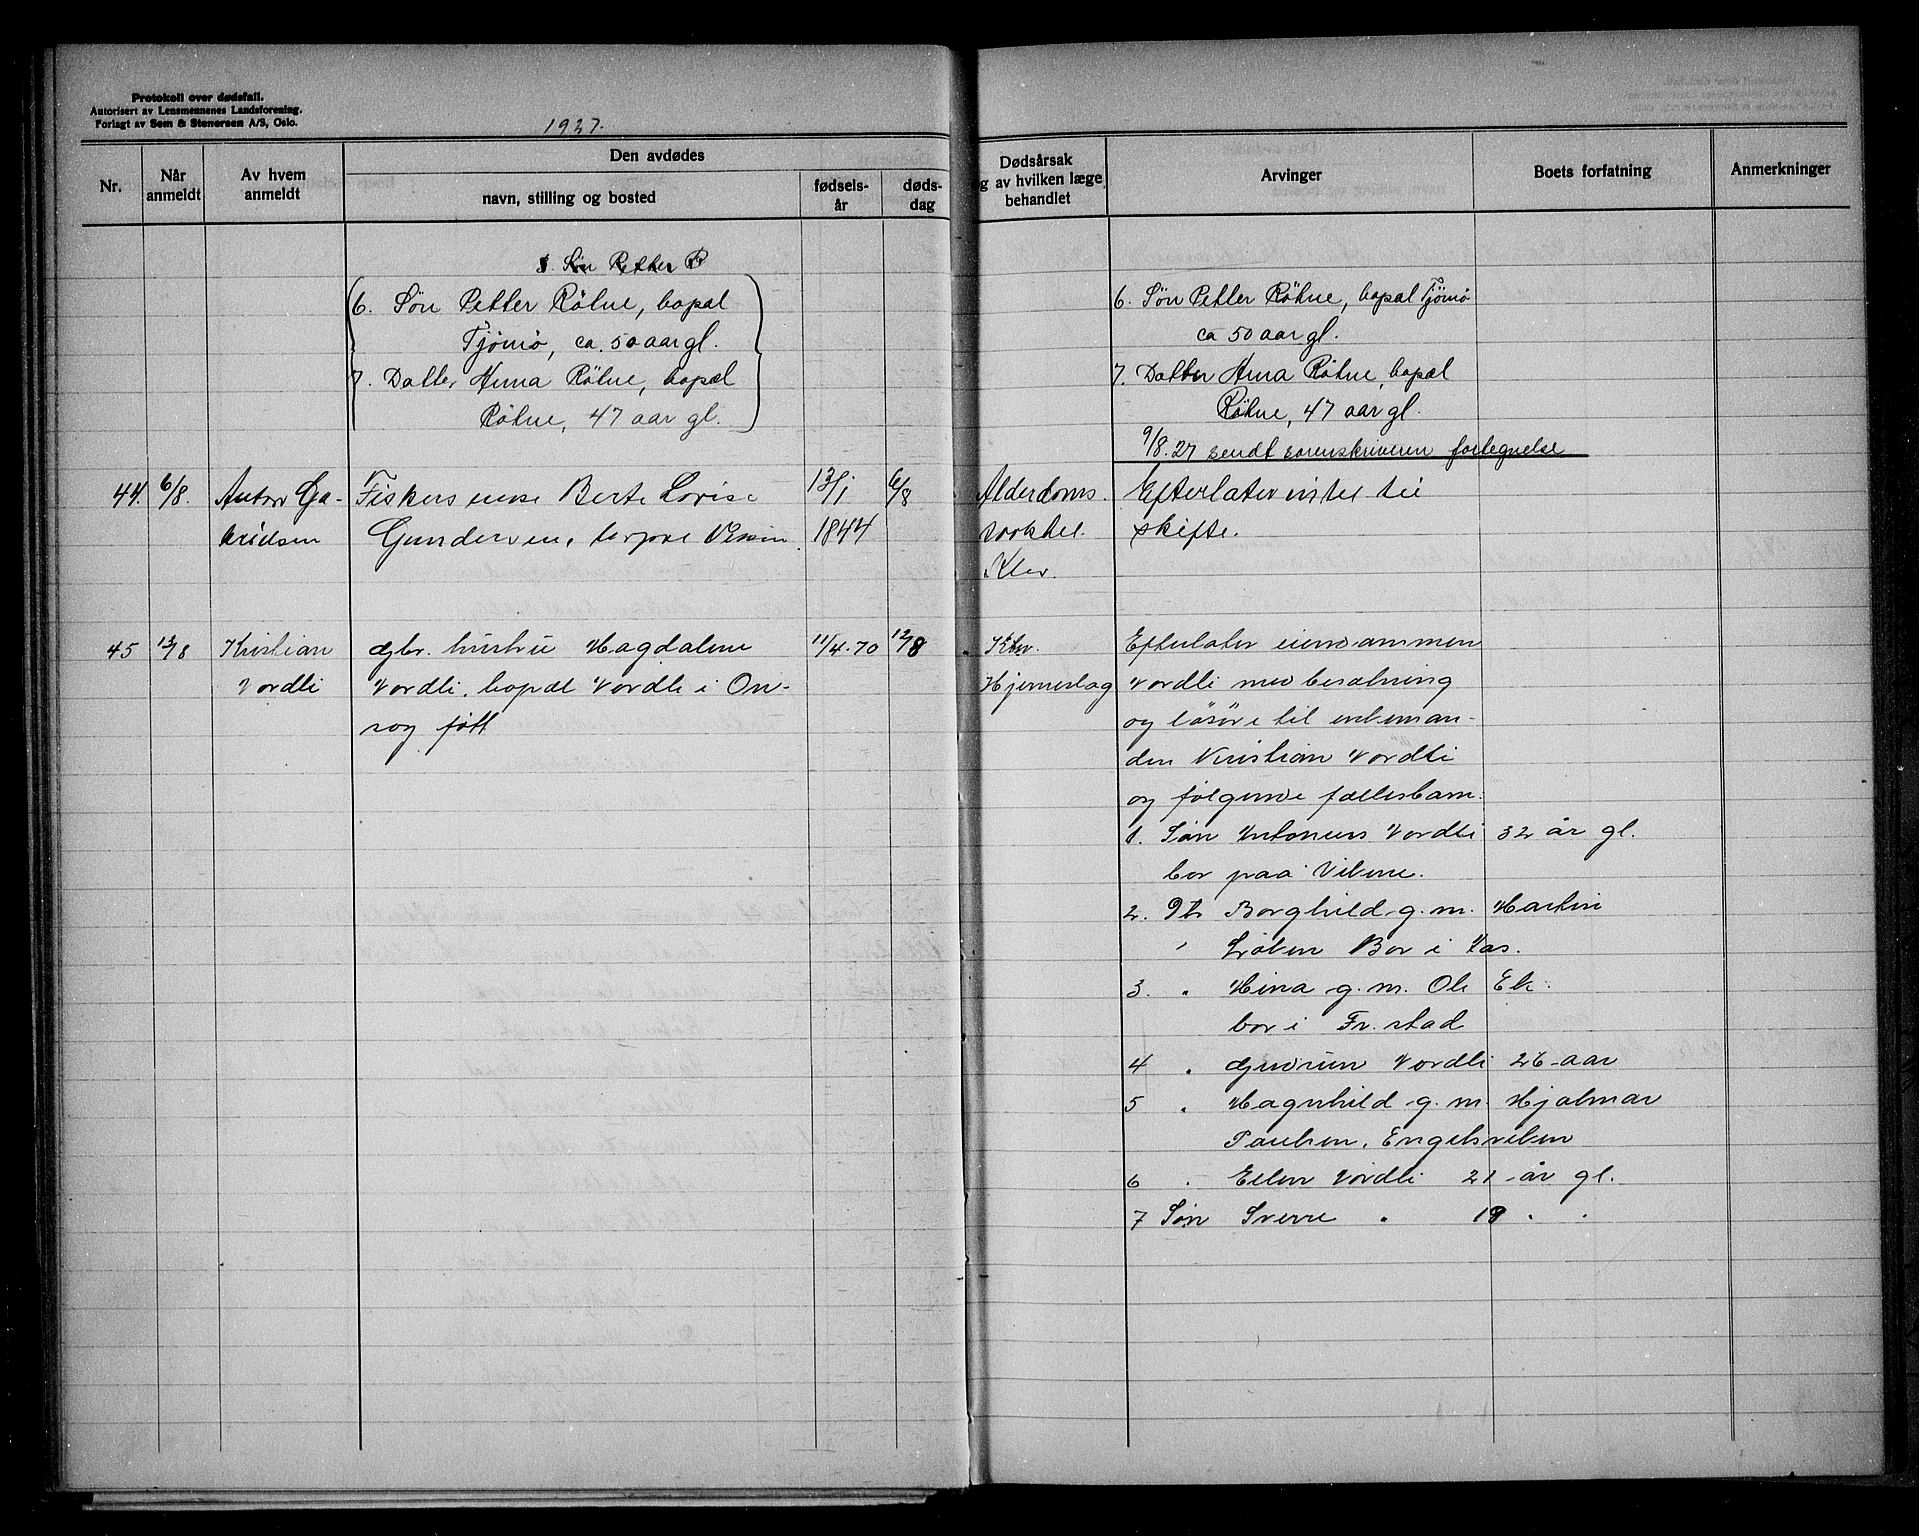 Protokoll over dødsfall.
Autorisert av Lensmennenes Landsforening.
Forlagt av Sem & Stenersen A/S, Oslo.
1927.
Nr.
Når anmeldt
Av hvem anmeldt
Den avdødes
navn, stilling og bosted
fødsels-år
døds-dag
Dødsårsak
g av hvilken læge
behandlet
Arvinger
Boets forfatning
Anmerkninger
Søn Petter R
6. Søn Petter Röhne, bopæl
Tjømø, ca. 50 aar gl.
7. Datter Anna Röhne, bopæl
Röhne, 47 aar gl.
6. Søn Petter Röhne, bopæl Tjømø
ca 50 aar gl.
7. Datter Anna Röhne, bopæl
Röhne, 47 aar gl.
9/8.27 sendt sorenskriveren fortegnelse
44. 6/8. Anton Ga- Fiskers enke Berte Lovise 13/1 6/8
brielsen Gundersen, 1844
Alderdoms. Efterlater intet til
skifte.
Kler.
45 13/8 Kristian gbr. hustru Magdalene 11/4-70 12/8
Vordli Vordli, bopæl Vordli i On-
søy født
Kler. Efterlater eiendommen
Hjerneslag Vordli med besætning
og løsøre til enkeman-
den Kristian Vordli
og følgende fællesbarn:
1. Søn Antonius Vordli 32 år gl.
bor paa Vikene.
2. Dtr Borghild g. m. Martin
Bor i
3. " Mina g. m. Ole Ek.
bor i Fr.stad
4 " Gudrun Vordli 26 aar
5 " Magnhild g. m. Hjalmar
Paulsen, Engelsviken
6 " Ellen Vordli 21 år gl.
7 Søn Sverre " 19 " "